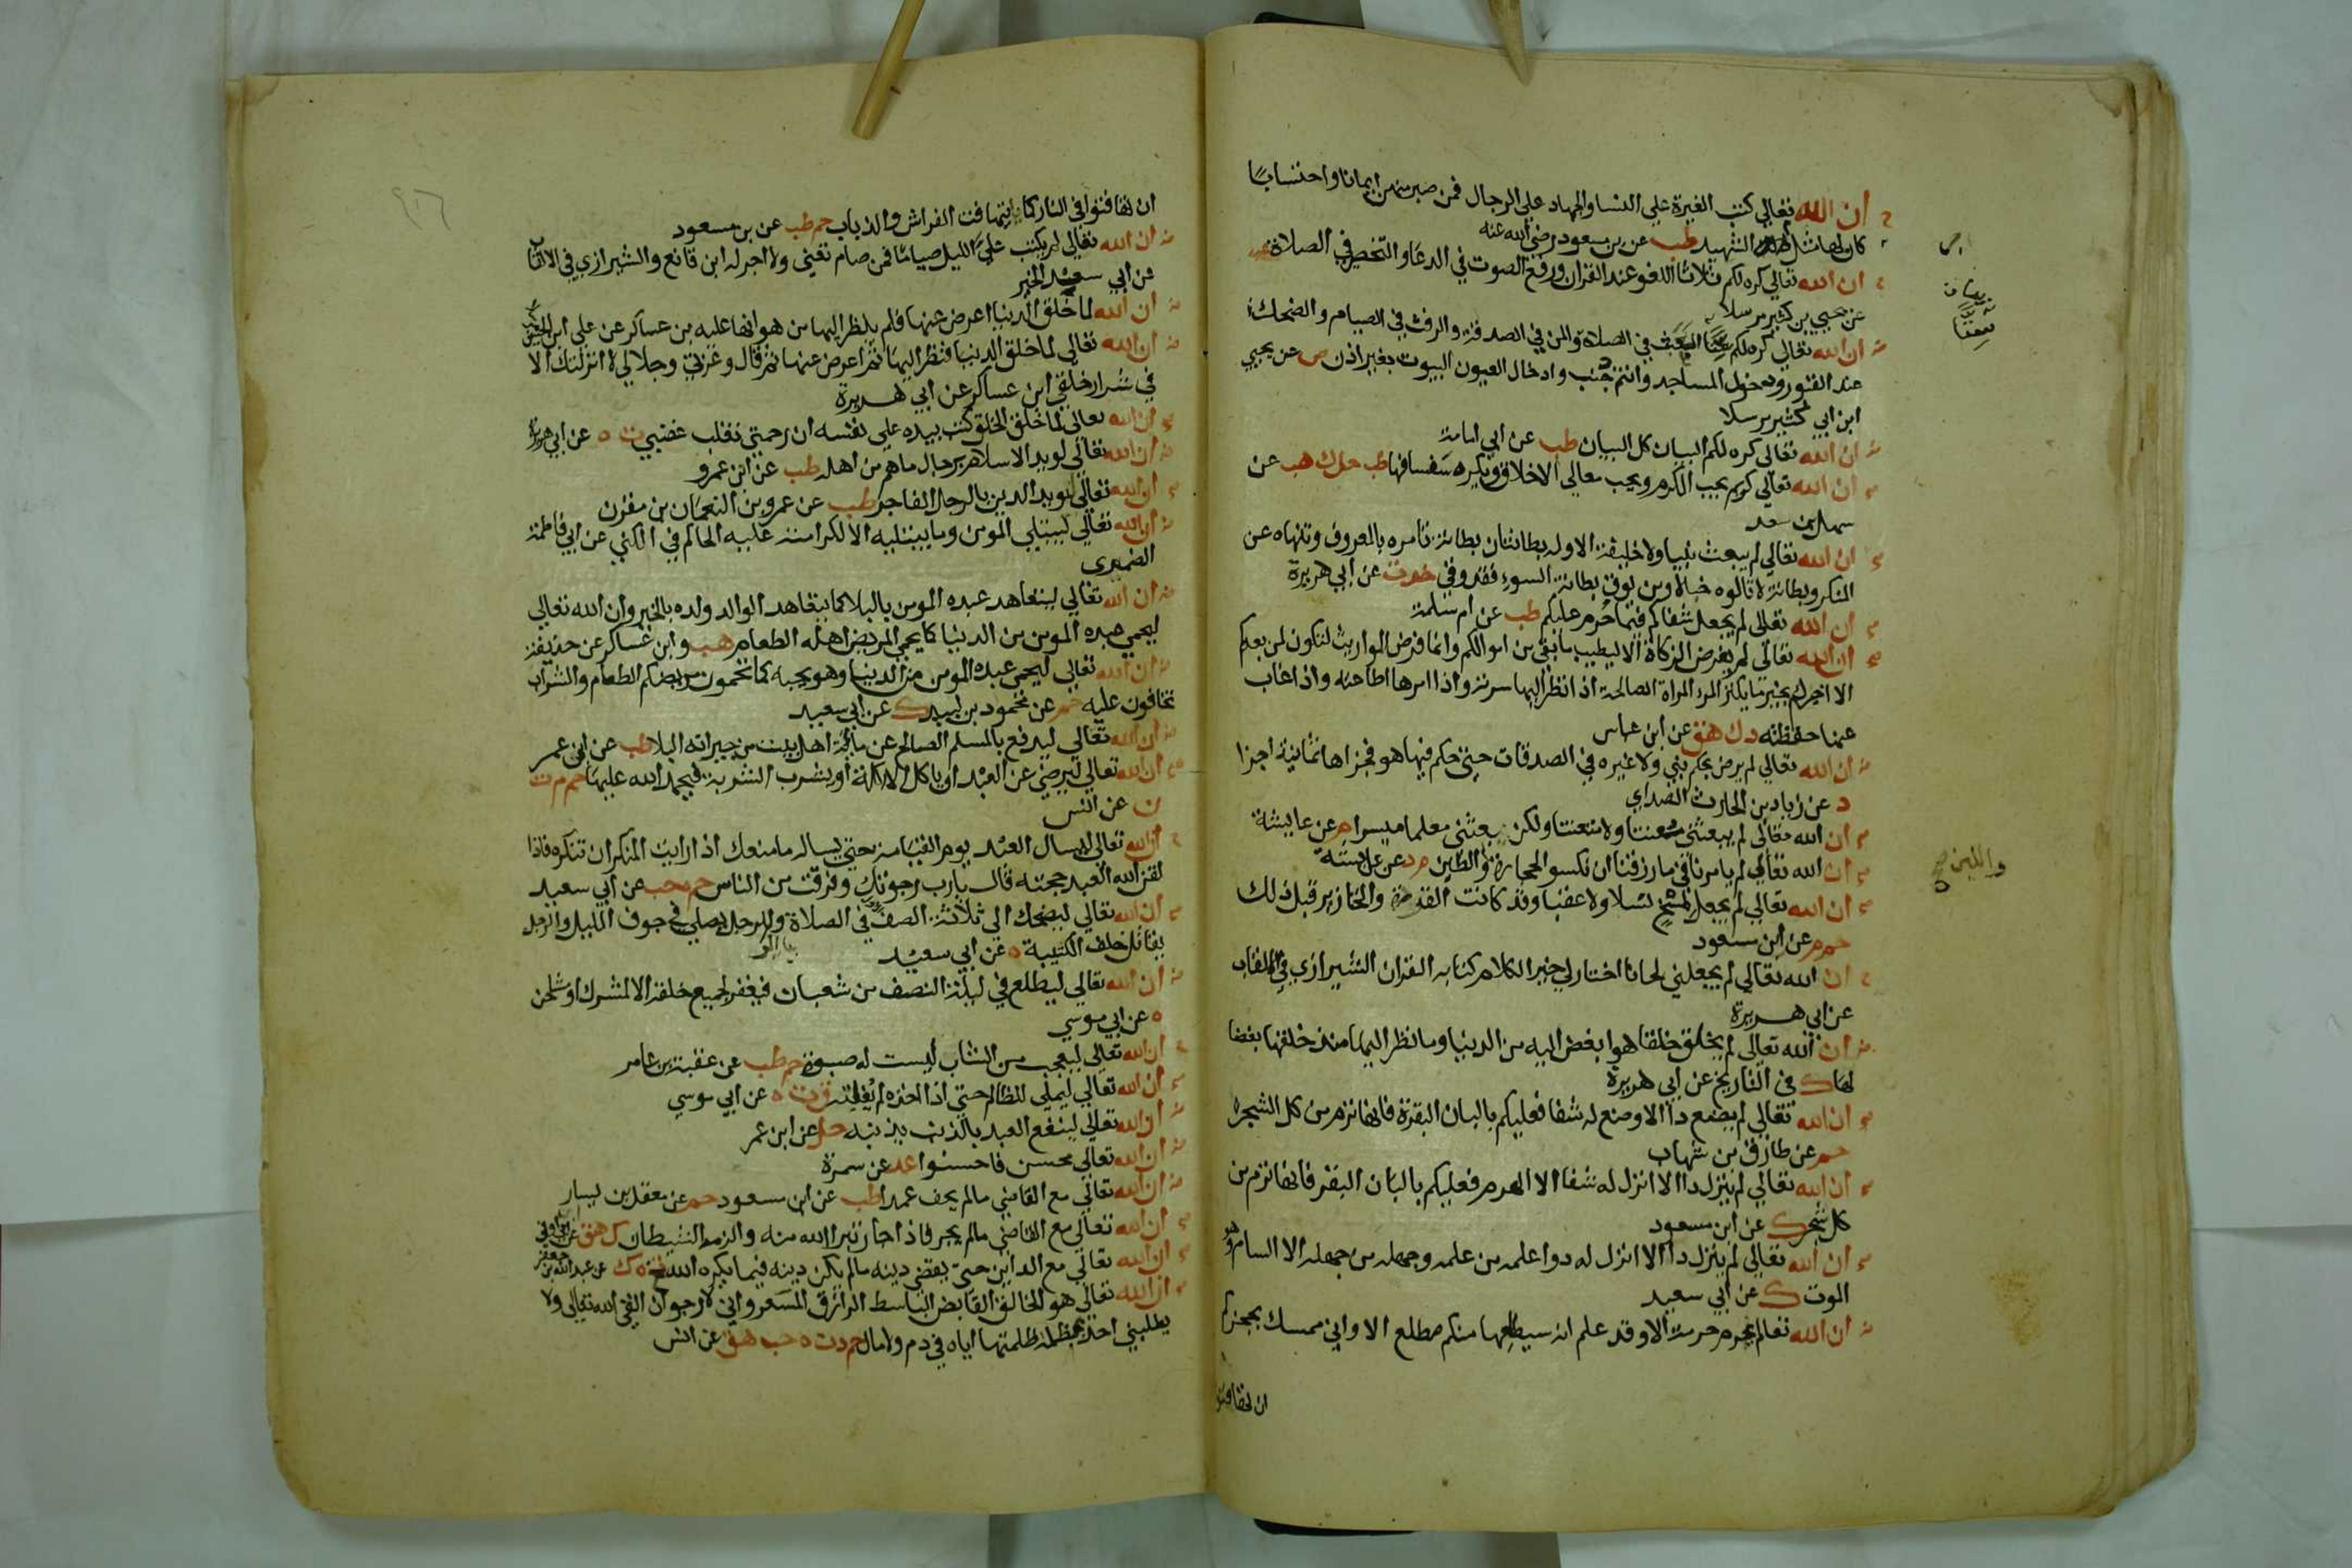 ان الله تعالي كتب الغيرة علي النسا والجهاد علي الرجال فمن صبر منهن ايمانا واحتسابا
كان لها مثل اجر الشهيد طب عن بن مسعود رضي الله عنه
ان الله تعالي كره لكم ثلاثا اللغو عند القران ورفع الصوت في الدعا والتخصر في الصلاة عب
عن يحيي بن كثير مرسلا
ان الله تعالي كره لكم العبث في الصلاة والمن في الصدقة والرفث في الصيام والضحك
عند القبور ودخول المساجد وانتم جنب وادخال العيون البيوت بغير اذن ص عن يحيي
ابن ابي كثير مرسلا
ان الله تعالي كره لكم البيان كل البيان طب عن ابي امامة
ان الله تعالي كريم يحب الكرم ويحب معالي الاخلاق ويكره سفسافها طب حل ك هب عن
سهل بن سعد
ان الله تعالي لم يبعث نبيا ولا خليفة الا وله بطانتان بطانة تامره بالمعروف وتنهاه عن
المنكر وبطانة لا تالوه خبالا ومن يوق بطانة السوء فقد وقي خد ت عن ابي هريرة
ان الله تعالي لم يجعل شفاكم فيما حرم عليكم طب عن ام سلمة
ان الله تعالي لم يفرض الزكاة الا ليطيب ما بقي من اموالكم وانما فرض المواريث لتكون لمن بعدكم
الا اخبرك بخير ما يكنز المرء المراة الصالحة اذا نظر اليها سرته واذا امرها اطاعته واذا غاب
عنها حفظته د ك هق عن ابن عباس
ان الله تعالي لم يرض بحكم نبي ولا غيره في الصدقات حتي حكم فيها هو فجزاها ثمانية اجزا
د عن زياد بن الحارث الصداي
ان الله تعالي لم يبعثني معنتا ولا متعنتا ولكن بعثني معلما ميسرا م عن عايشة
ان الله تعالي لم يامرنا فيما رزقنا ان نكسو الحجارة والطين م د عن عايشة
ان الله تعالي لم يجعل لمسخ نسلا ولا عقبا وقد كانت القردة والخنازير قبل ذلك
حم م عن ابن مسعود
ان الله تعالي لم يجعلني لحانا اختار لي خير الكلام كتابه القران الشيرازي في الالقاب
عن ابي هريرة
ان الله تعالي لم يخلق خلقا هو ابغض اليه من الدنيا وما نظر اليها منذ خلقها بغضا
لها ك في التاريخ عن ابي هريرة
ان الله تعالي لم يضع دا الا وضع له شفا فعليكم بالبان البقرة فانها ترم من كل الشجر
حم عن طارق بن شهاب
ان الله تعالي لم ينزل دا الا انزل له شفا الا الهرم فعليكم بالبان البقر فانها ترم من
كل شجر ك عن ابن مسعود
ان الله تعالي لم ينزل دا الا انزل له دوا علمه من علمه وجهله من جهله الا السام وهو
الموت ك عن ابي سعيد
ان الله تعالي لم يحرم حرمة الا وقد علم انه سيطلعها منكم مطلع الا واني ممسك بحجزكم
ان تهافتوا
والطين صح
ان تهافتوا في النار كما يتهافت الفراش والذباب حم طب عن بن مسعود
ان الله تعالي لم يكتب علي الليل صياما فمن صام تعني ولا اجر له ابن قانع والشيرازي في الالقاب
عن ابي سعيد الخير
ان الله لما خلق الدنيا اعرض عنها فلم ينظر اليها من هوانها عليه بن عساكر عن علي ابن الحسين
ان الله تعالي لما خلق الدنيا فنظر اليها ثم اعرض عنها ثم قال وعزتي وجلالي لا انزلتك الا
في شرار خلقي ابن عساكر عن ابي هريرة
ان الله تعالي لما خلق الخلق كتب بيده علي نفسه ان رحمتي تغلب غضبي ت ه عن ابي هريرة
ان الله تعالي ليويد الاسلام برجال ما هم من اهله طب عن ابن عمرو
ان الله تعالي ليويد الدين بالرجل الفاجر طب عن عمرو بن النعمان بن مقرن
ان الله تعالي ليبتلي المومن وما يبتليه الا لكرامته عليه الحاكم في الكني عن ابي فاطمة
الضمري
ان الله تعالي ليتعاهد عبده المومن بالبلا كما يتعاهد الوالد ولده بالخير وان الله تعالي
ليحمي عبده المومن من الدنيا كما يحمي المريض اهله الطعام هب وابن عساكر عن حذيفة
ان الله تعالي ليحمي عبده المومن من الدنيا وهو يحبه كما تحمون مريضكم الطعام والشراب
تخافون عليه حم عن محمود بن لبيد ك عن ابي سعيد
ان الله تعالي ليدفع بالمسلم الصالح عن ماية اهل بيت من جيرانه البلا طب عن ابن عمر
ان الله تعالي ليرضي عن العبد ان ياكل الاكلة او يشرب الشربة فيحمد الله عليها حم م ت
ن عن انس
ان الله تعالي ليسال العبد يوم القيامة حتي يساله ما منعك اذا رايت المنكر ان تنكره فاذا
لقن الله العبد حجته قال يا رب رجوتك وفرقت من الناس حم ه حب عن ابي سعيد
ان الله تعالي ليضحك الي ثلاثة الصف في الصلاة والرجل يصلي في جوف الليل والرجل
يقاتل خلف الكتيبة ه عن ابي سعيد
ان الله تعالي ليطلع في ليلة النصف من شعبان فيغفر لجميع خلقه الا لمشرك او مشاحن
ه عن ابي موسي
ان الله تعالي ليعجب من الشاب ليست له صبوة حم طب عن عقبة بن عامر
ان الله تعالي ليملي للظالم حتي اذا اخذه لم يفلته ق ت ه عن ابي موسي
ان الله تعالي لينفع العبد بالذنب يذنبه حل عن ابن عمر
ان الله تعالي محسن فاحسنوا عد عن سمرة
ان الله تعالي مع القاضي مالم يحف عمدا طب عن ابن مسعود حم عن معقل بن يسار
ان الله تعالي مع القاضي مالم يجر فاذا جار تبرا الله منه والزمه الشيطان ك هق عن ابن ابي اوفي
ان الله تعالي مع الداين حتي يقضي دينه مالم يكن دينه فيما يكره الله تخ ه ك عن عبد الله بن جعفر
ان الله تعالي هو الخالق القابض الباسط الرازق المسعر واني لارجو ان القي الله تعالي ولا
يطلبني احد بمظلمة ظلمتها اياه في دم ولا مال حم د ت ه حب هق عن انس